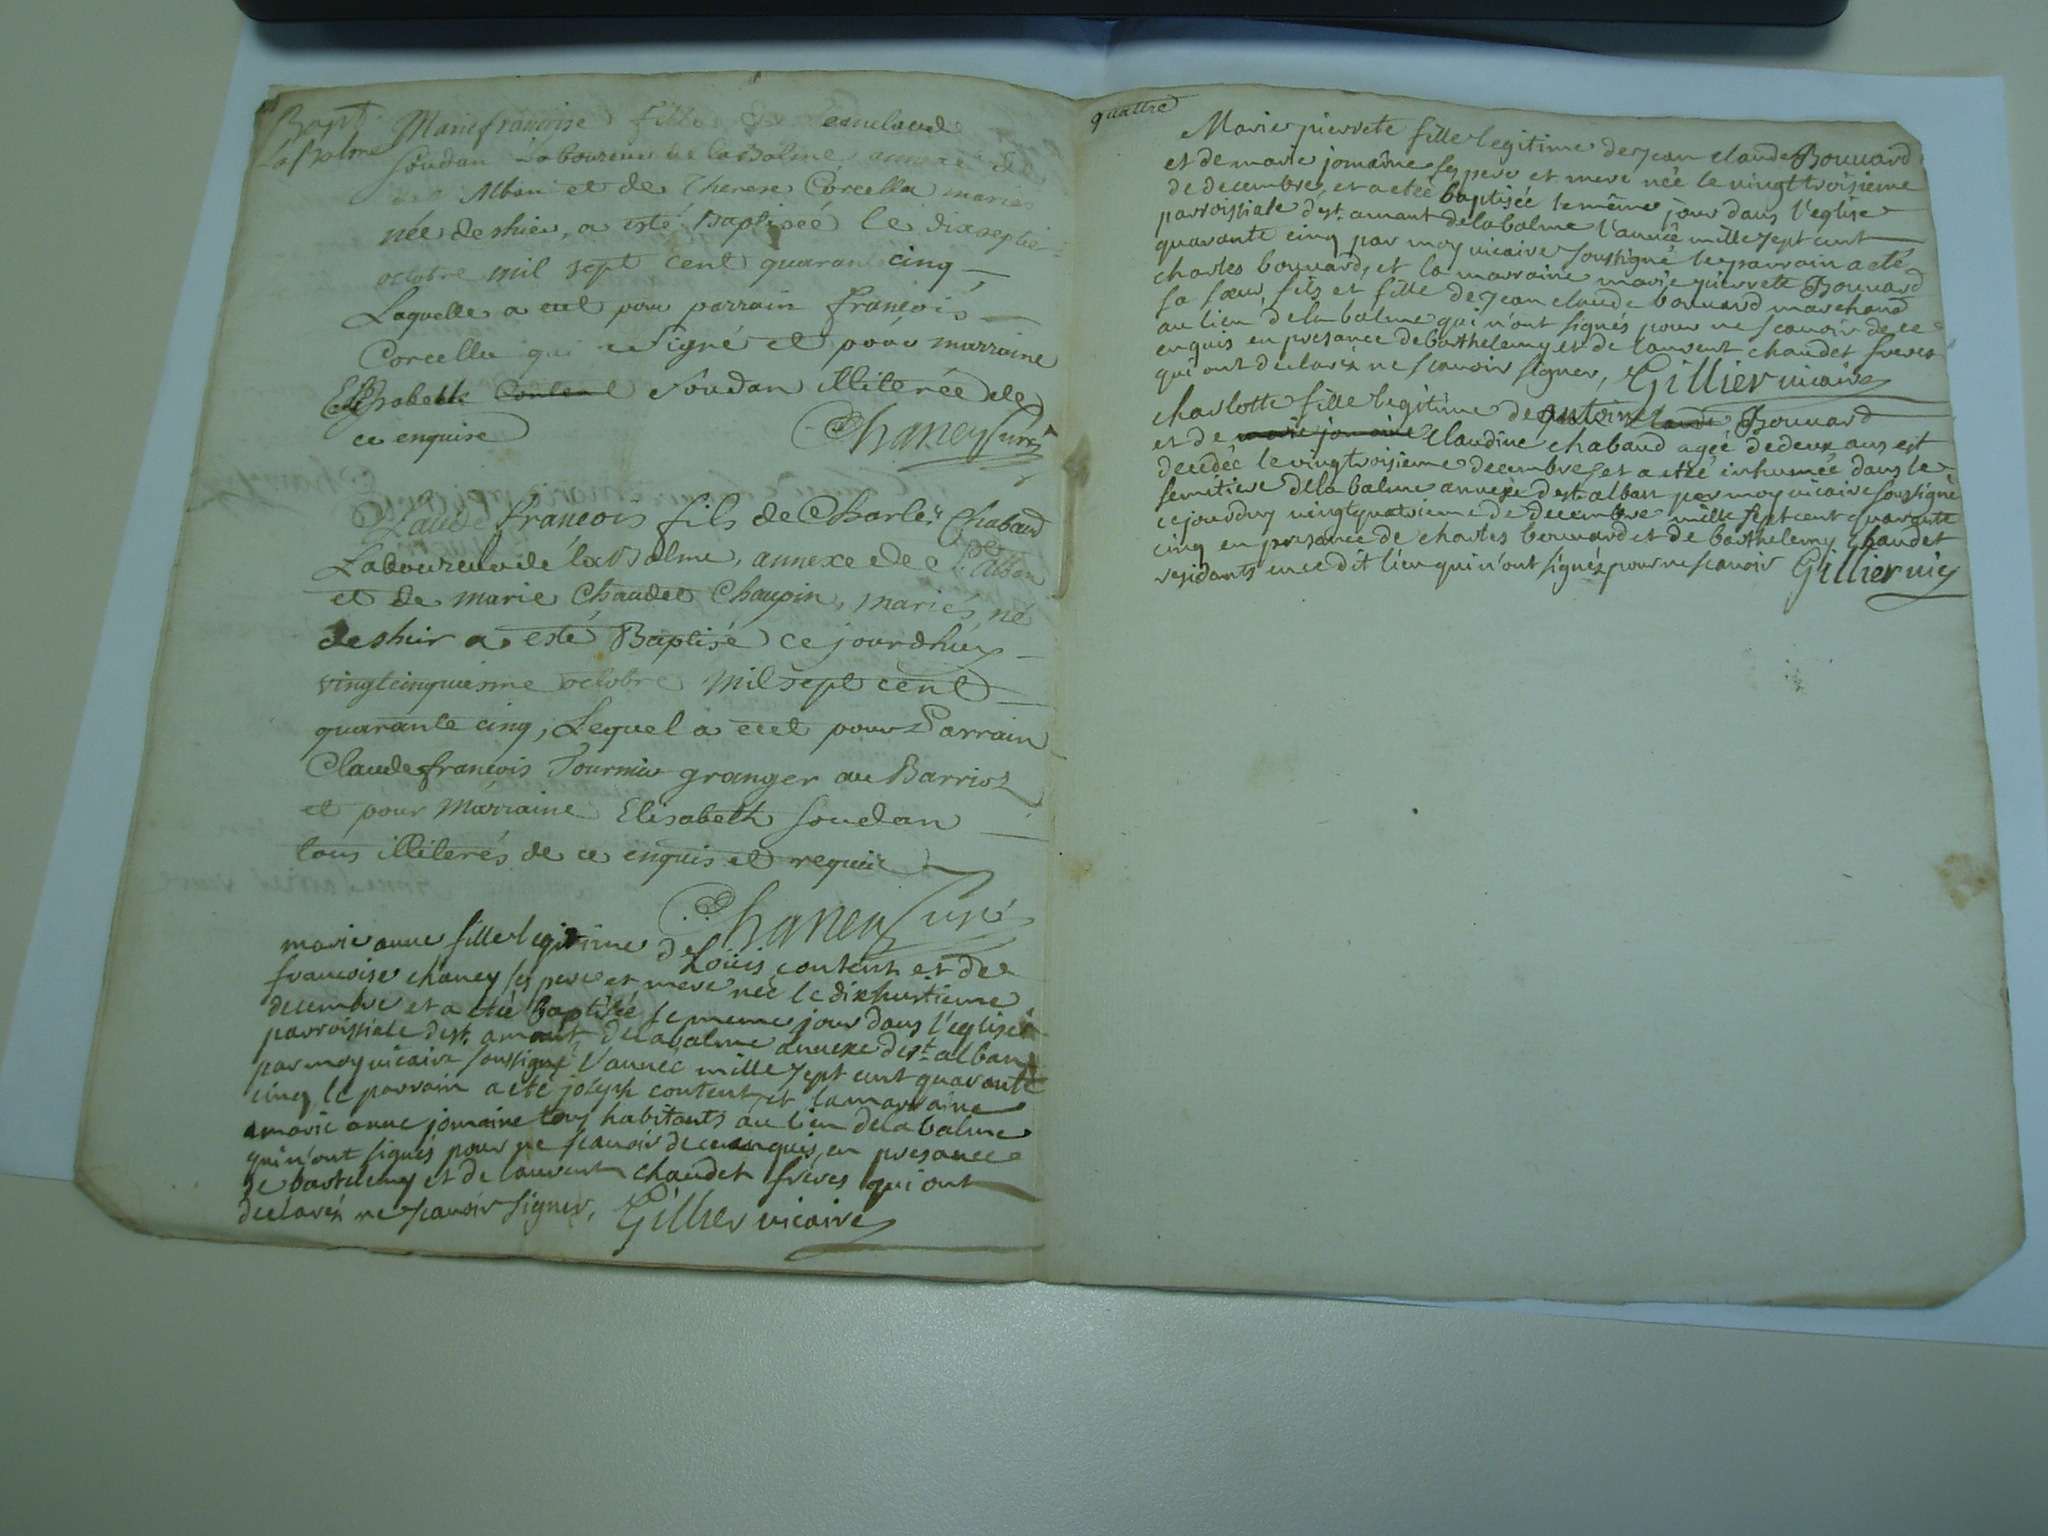 Bapt
La Balme
Marie françoise fille de Jean claude
Soudan Laboureur de la Balme annexe de
St Alban et de Therese Corcella mariés
née deshier, a esté Baptisée le dixseptie
octobre mil sept cent quarante cinq
Laquelle a eut pour parrain françois
Corcella qui a signé et pour marraine
Elisabeth Soudan illiterée de
ce enquise
Chaney Curé
Claude françois fils de Charles Chabaud
Laboureur de la Balme, annexe de St Alban
et de marie Chaudet Chaupin, mariés, né
deshier a esté Baptisé ce jourdhuy
vingtcinquiesme octobre mil sept cent
quarante cinq, Lequel a eut pour Parrain
Claude françois Tournier granger au Barrioz
et pour Marraine Elisabeth Soudan
tous illiterés de ce enquis et requis
Chaney Curé
marie anne fille legitime de Loüis content et de
francoise chaney ses pere et mere née le dixhuitieme
decembre et a eté baptisée le meme jour dans l'eglise
parroissiale de st. amant de la balme annexe de st. alban
par moy vicaire soussigné l'année mille sept cent quarante
cinq le parrain a eté joseph content et la marraine
marie anne jomaine tous habitants au lieu de la balme
qui n'ont signés pour ne scavoir de ce enquis, en presance
de bartelemy et de laurent chaudet freres qui ont
declarés ne scavoir signer, Gillier vicaire
quattre
Marie pierrete fille legitime de Jean claude Bouuard
et de marie jomaine ses pere et mere née le vingt troisieme
de decembre, et a eteé baptisée le même jour dans l'eglise
parroissiale de st. amant de la balme l'année mille sept cent
quarante cinq par moy vicaire soussigné le parrain a eté
charles bouuard, et la marraine marie pierrete Bouuard
sa sœur, fils et fille de Jean claude bouuard marchand
au lieu de la balme qui n'ont signés pour ne scavoir de ce
enquis en presance de barthelemy et de laurent chaudet freres
qui ont declarés ne scavoir signer, Gillier vicaire
charlotte fille legitime de antoine claude Bouuard
et de marie jomaine claudine chabaud ageé de deux ans est
decedée le vingtroisieme decembre, et a eté inhumée dans le
semitiere de la balme annexe de st alban par moy vicaire soussigné
ce jourduy vingtquatrieme de decembre mille sept cent quarante
cinq en presance de charles bouuard et de barthelemy chaudet
residants en ce dit lieu qui n'ont signés pour ne scavoir Gillier vic